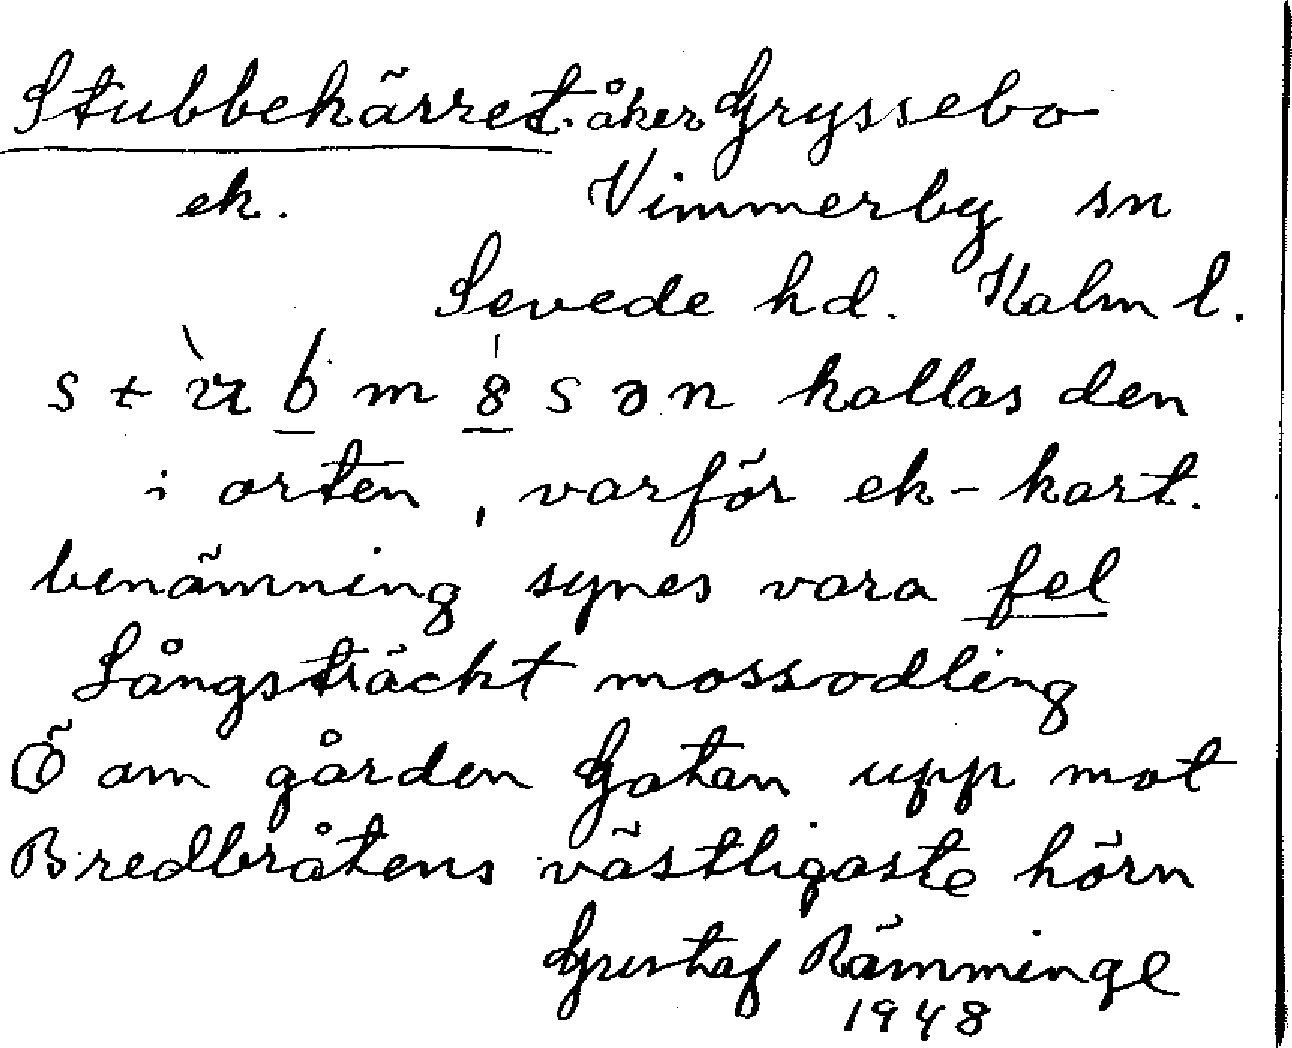 Stubbekärret. åker Gryssebo
ek. Vimmerby sn
Sevede hd. Kalm l.
kallas den
i orten, varför ek-kart.
benämning synes vara fel
Långsträckt mossodling
Ö om gården Gatan upp mot
Bredbråtens västligaste hörn
Gustaf Rämminge
1948